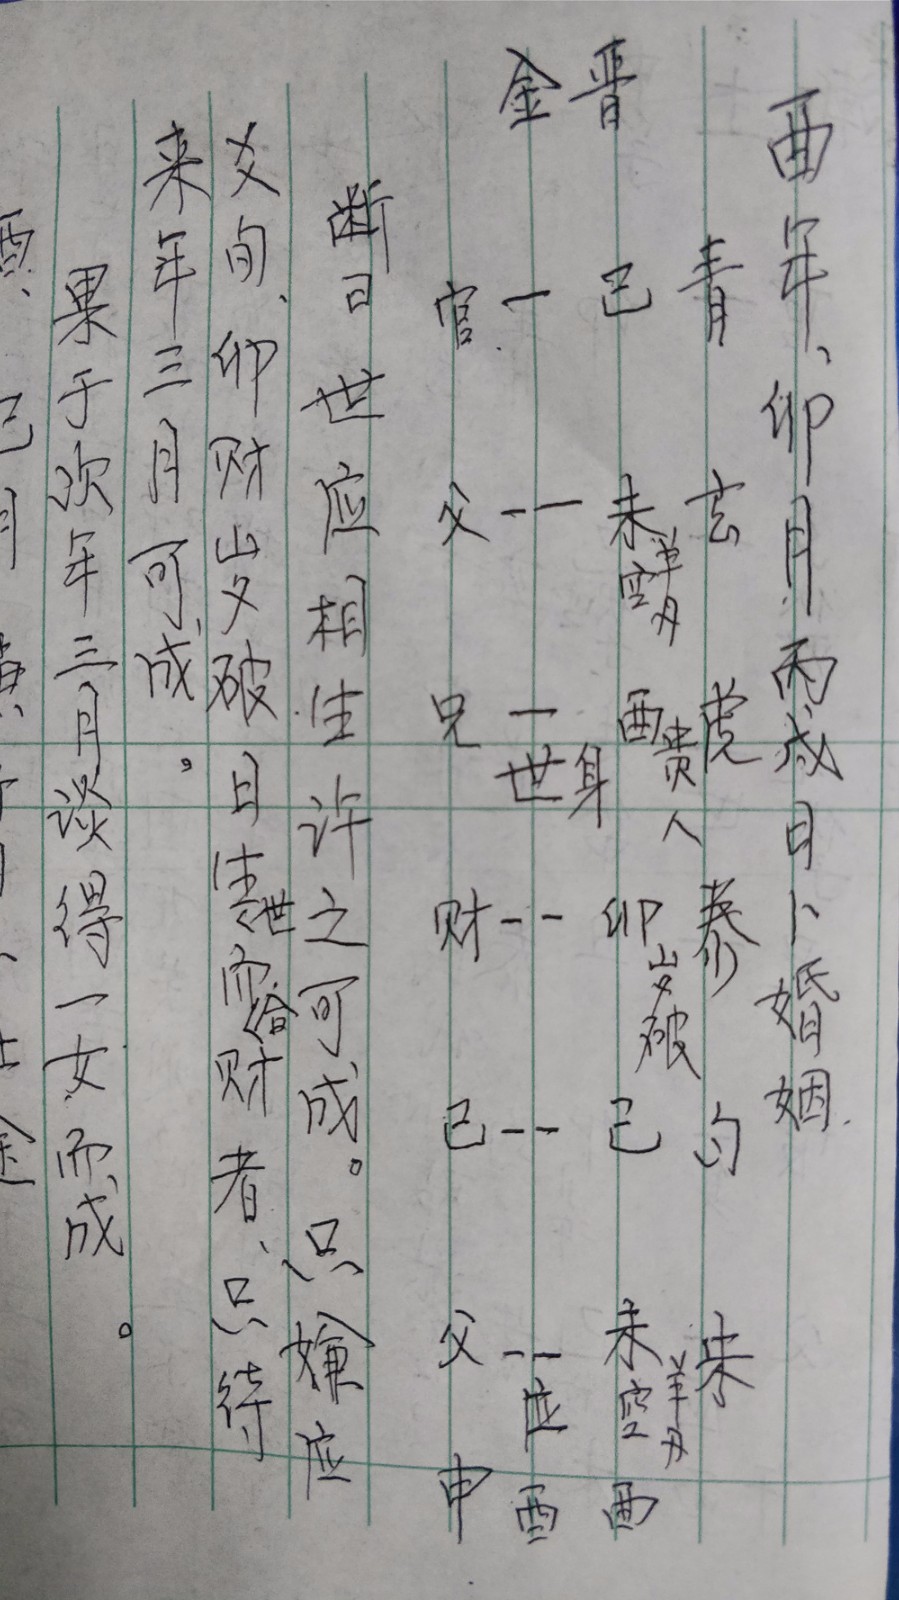 酉年、卯月丙戌日卜婚姻.
青 玄 虎 勾 朱
晋 巳 未 空 羊刃 酉 贵人 身 卯 岁破 巳 未 空 羊刃 酉
金 官 父 兄 世 财 巳 父 应 申 酉
断曰世应相生许之可成。只嫌应
爻旬、卯财岁破日生世而合财者、只待
来年三月可成。
果于次年三月谈得一女而成。